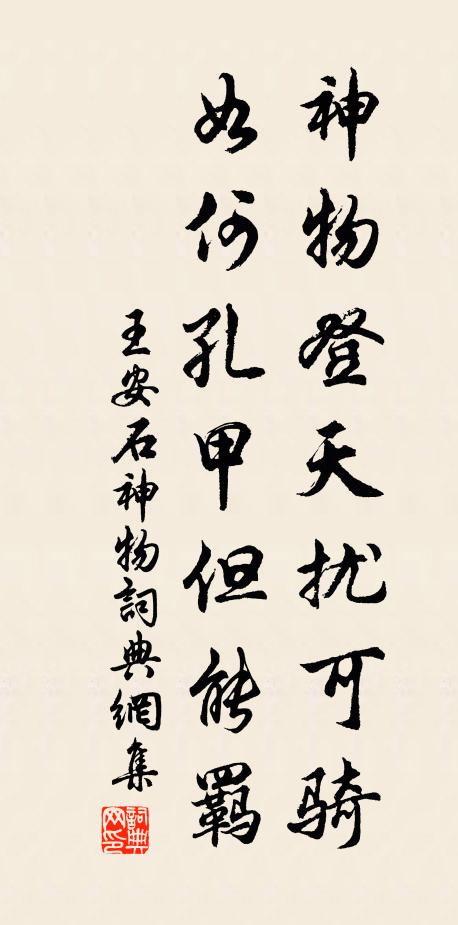 神物登天扰可骑
如何孔甲但能羁
王安石神物詞典網集
詞典网印